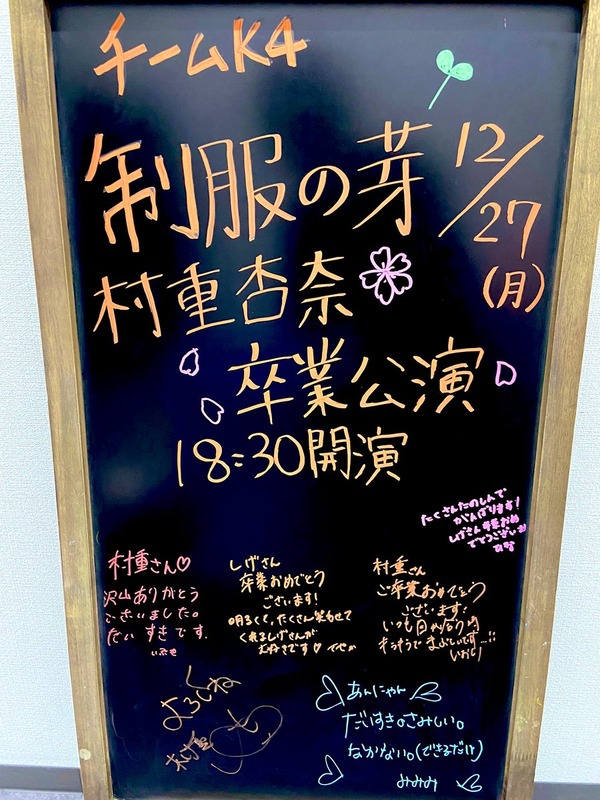 チームK4
制服の芽
12/27
(月)
村重杏奈
卒業公演
18:30開演
たくさんたのしんで
がんばります!
しげさん卒業おめ
でとうございます
ひな
村重さん♡
沢山ありがとう
ございました。
だいすきです。
いぶき
しげさん
卒業おめでとう
ございます!
明るくて、たくさん笑わせて
くれるしげさんが
大好きです♡
村重さん
ご卒業おめでとう
ございます!
いつも目が合う時
キラキラでまぶしいです…!!
いおり
よろしくね
村重
あんにゃん
だいすき。さみしい。
なかない。(できるだけ)
みみみ